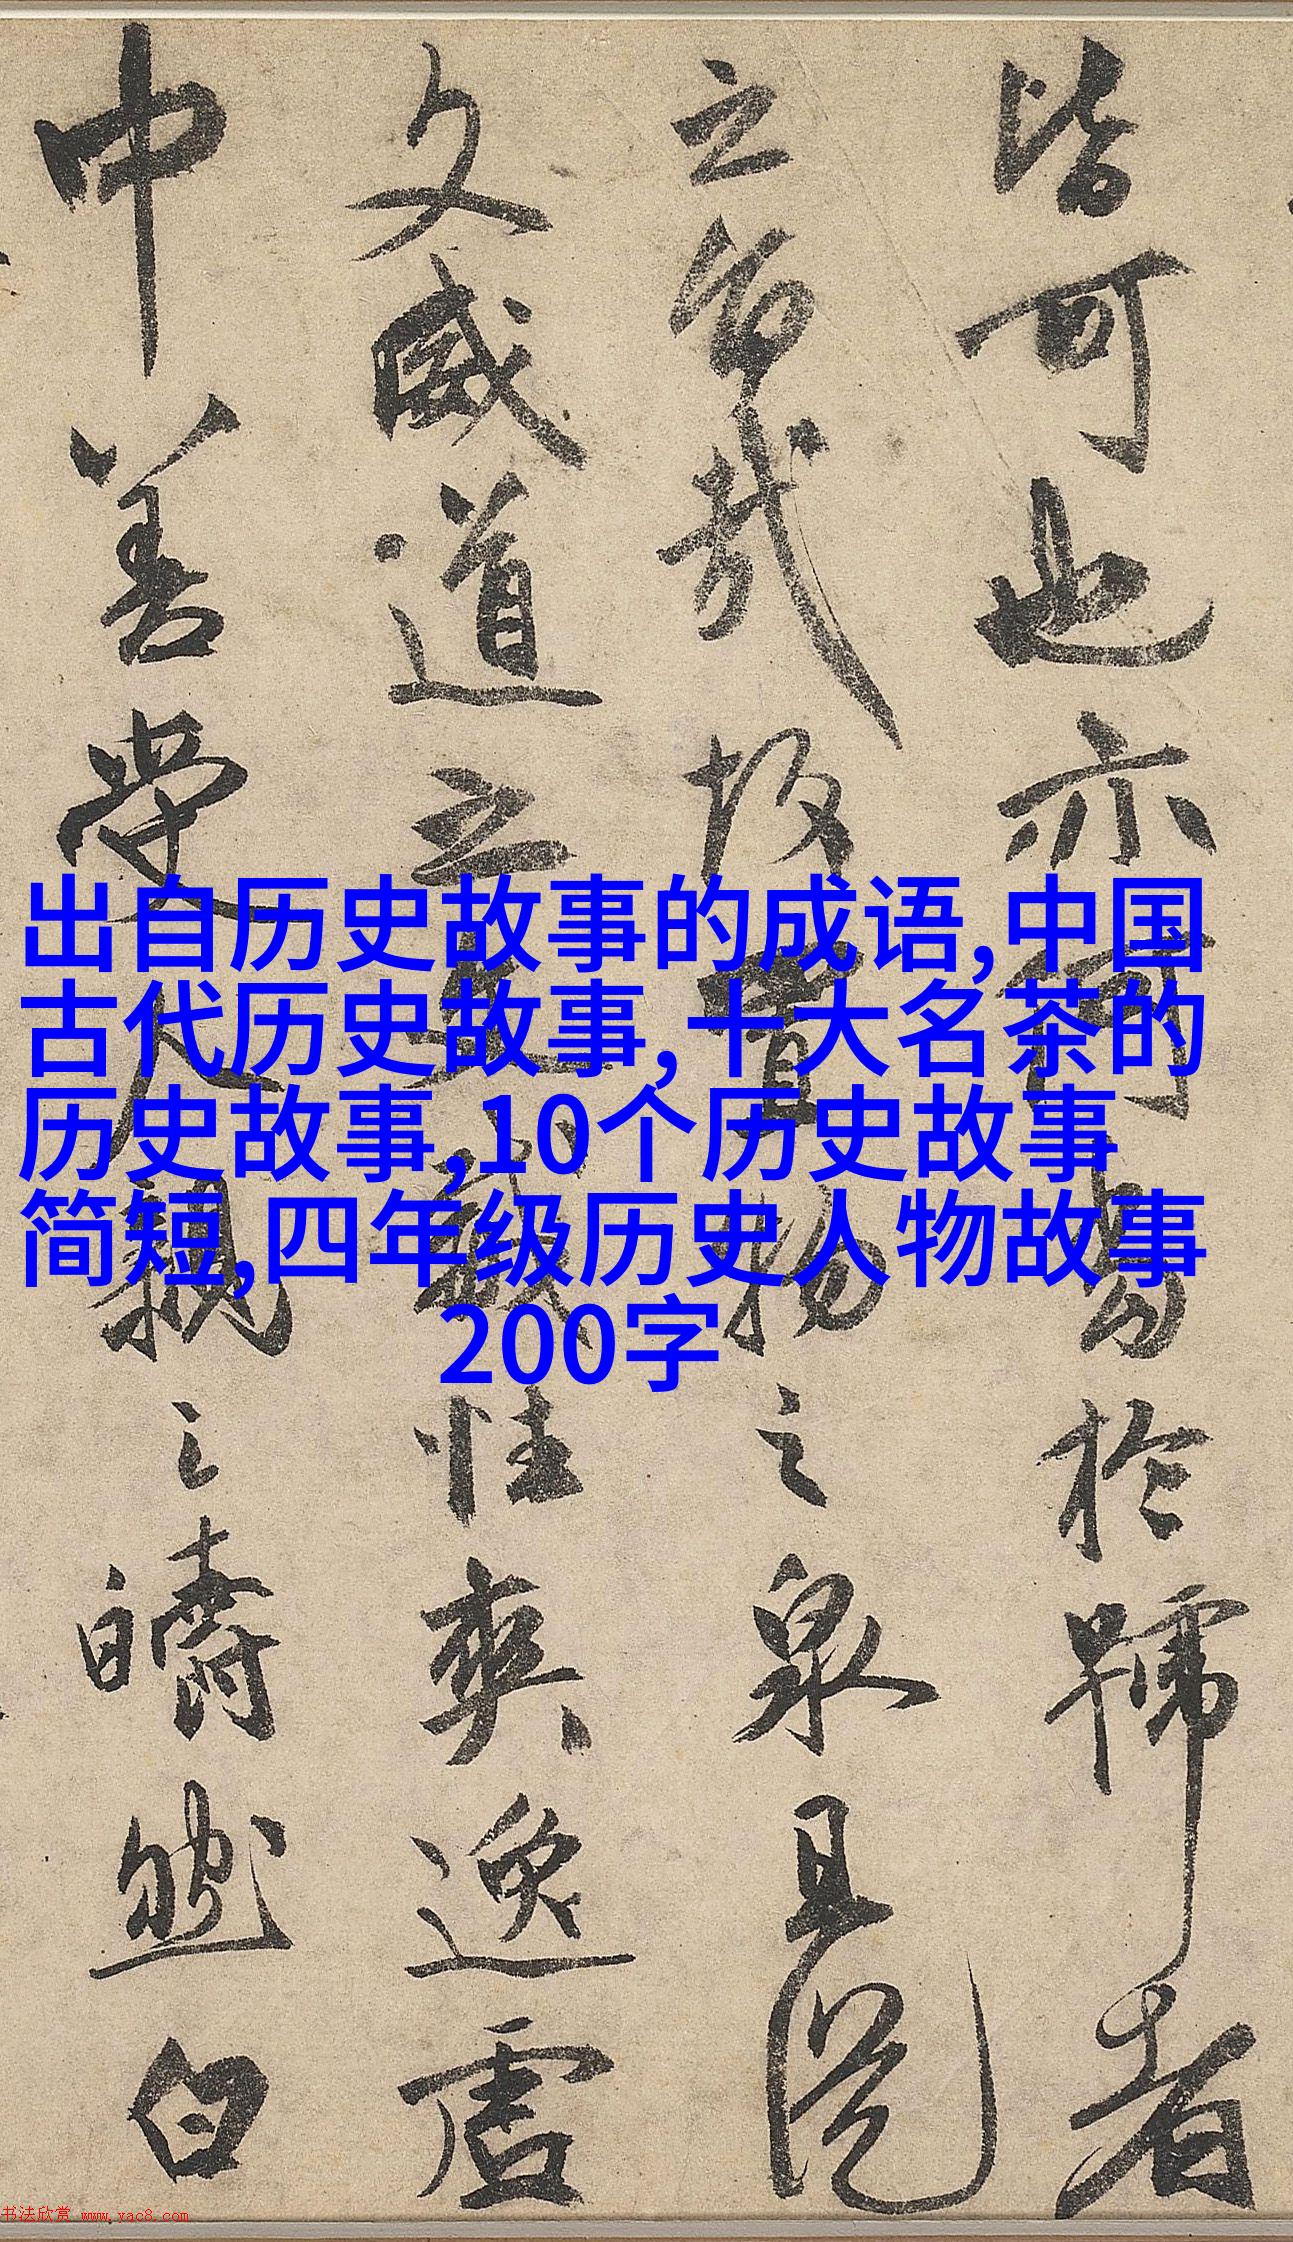 皆可也亦何易於歸者
立名哉故置物之泉且從
文威道立
性爽逸虛
中善受人親之疇然白
出自历史故事的成语,中国
古代历史故事,十大名茶的
历史故事,10个历史故事
简短,四年级历史人物故事
200字
书法欣赏 www.yac8.com